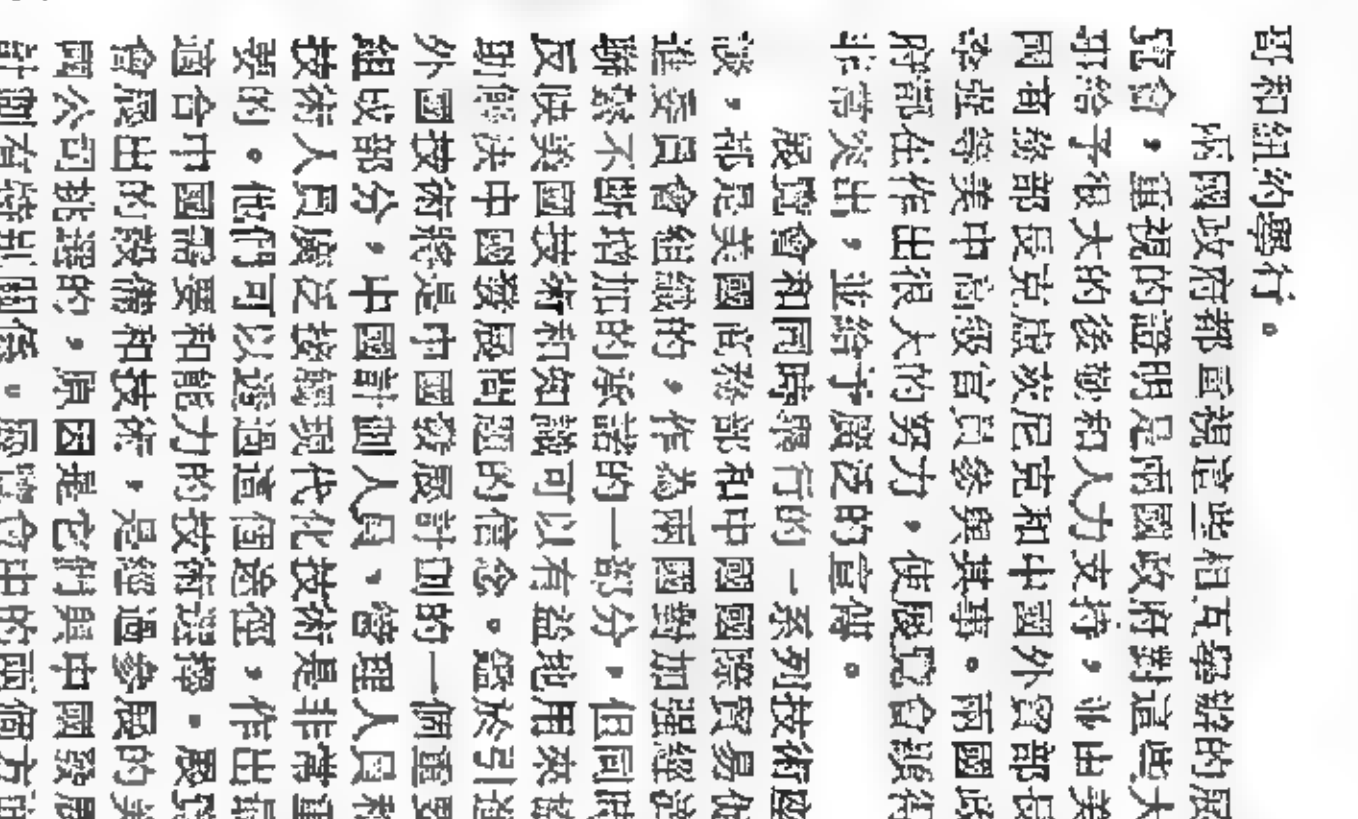 哥和紐約舉行。
兩國政府都重視這些相互舉辦的展
覽會，重視的證明是兩國政府對這些大
可給予很大的後勤和人力支持，並由美
國商務部長克盧茨尼克和中國外貿部長
李强等美中高級官員參與其事。兩國政
府都在作出很大的努力，使展覽會獲得
非常突出，並給予廣泛的宣傳。
展覽會和同時舉行的一系列技術座
談，都是美國商務部和中國國際貿易促
進委員會組織的，作為兩國對加强經濟
聯繫不斷增加的承諾的一部分，但同時
反映美國技術和知識可以有益地用來幫
助解決中國發展問題的信念。鑑於引進
外國技術將是中國發展計劃的一個重要
組成部分，中國計劃人員，管理人員和
技術人員廣泛接觸現代化技術是非常重
要的。他們可以通過這個途徑，作出最
適合中國需要和能力的技術選擇。展覽
會展出的設備和技術，是經過參展的美
國公司挑選的，原因是它們與中國發展
計劃有特別關係。展覽會中的兩個方面